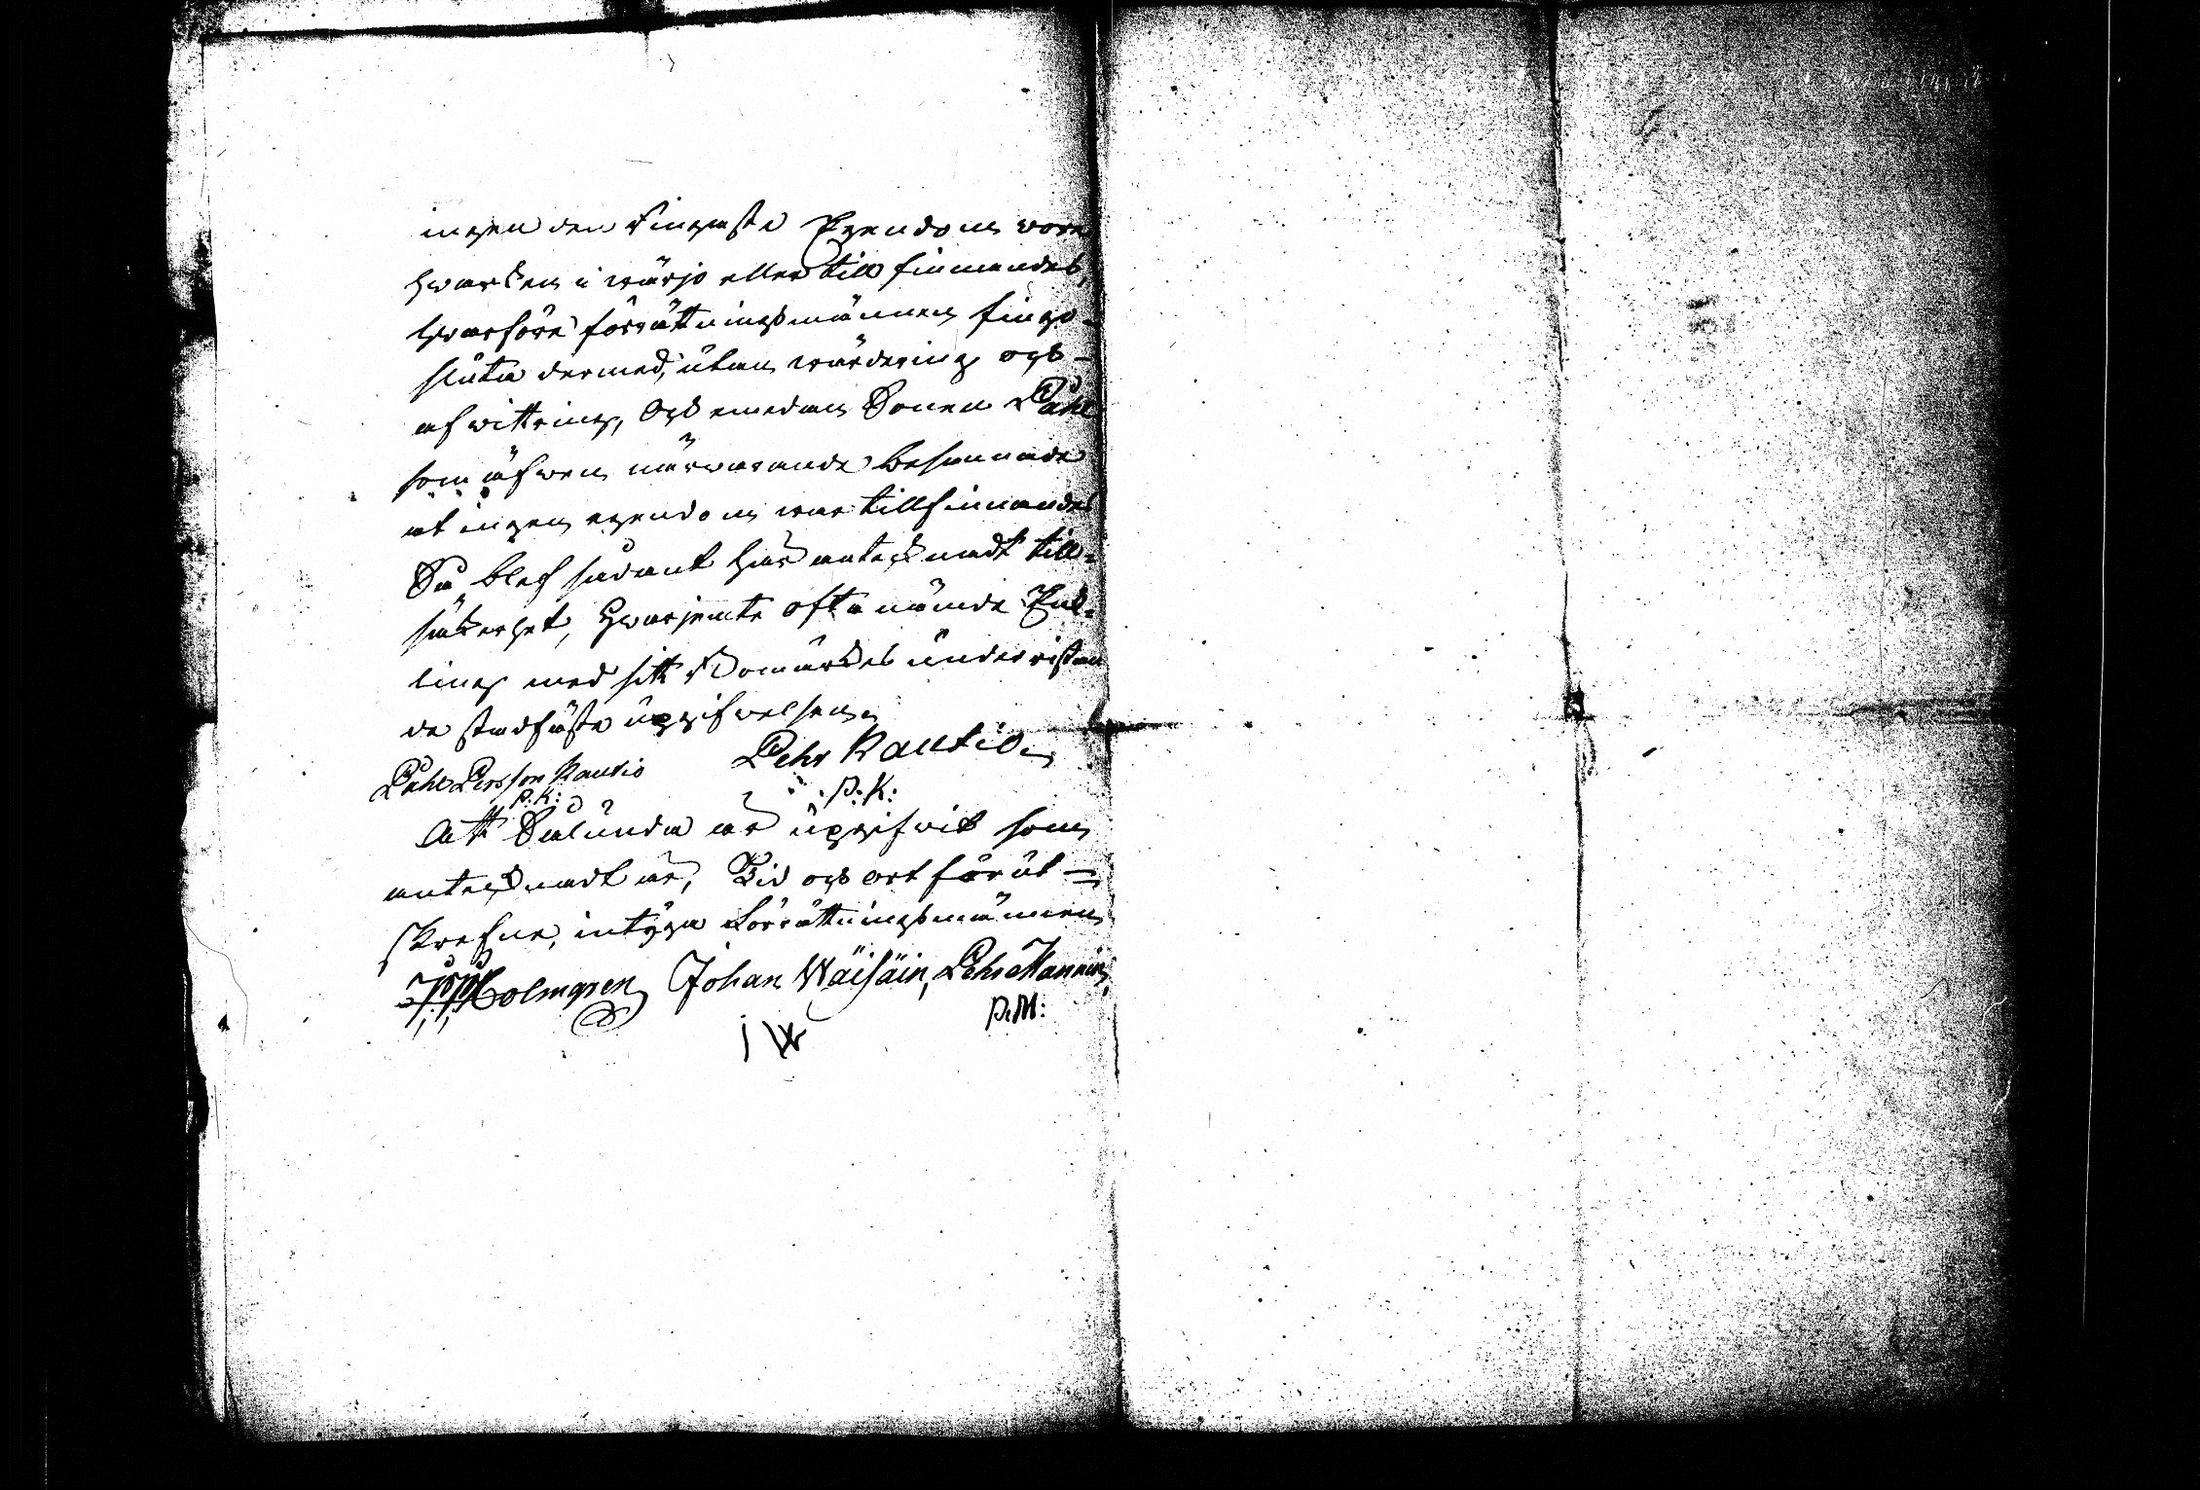 ingen den ringaste Egendom vore
hwarken i wärjo eller till finnandes,
hwarföre förrättningsmännen fingo
sluta dermed, utan wärdering och
afwittring, Och emedan Sonen Påhl
som äfwen närwarande besannade
at ingen egendom war tillfinnandes
Så blef sådant här antecknadt till
säkerhet, Hwarjemte oftanämde Enk-
ling med sitt Bomärkes underristan
de stadfäste upgifwelsen.
Påhl Persson Rautio Pehr Rautio
P: K: P: K:
Att Sålunda är upgifwit som
antecknadt är, Tid och ort förut
skrefne, intyga Förrättningsmännen
Holmgren Johan Wäisäin, Pehr Mannin
I W P: M: